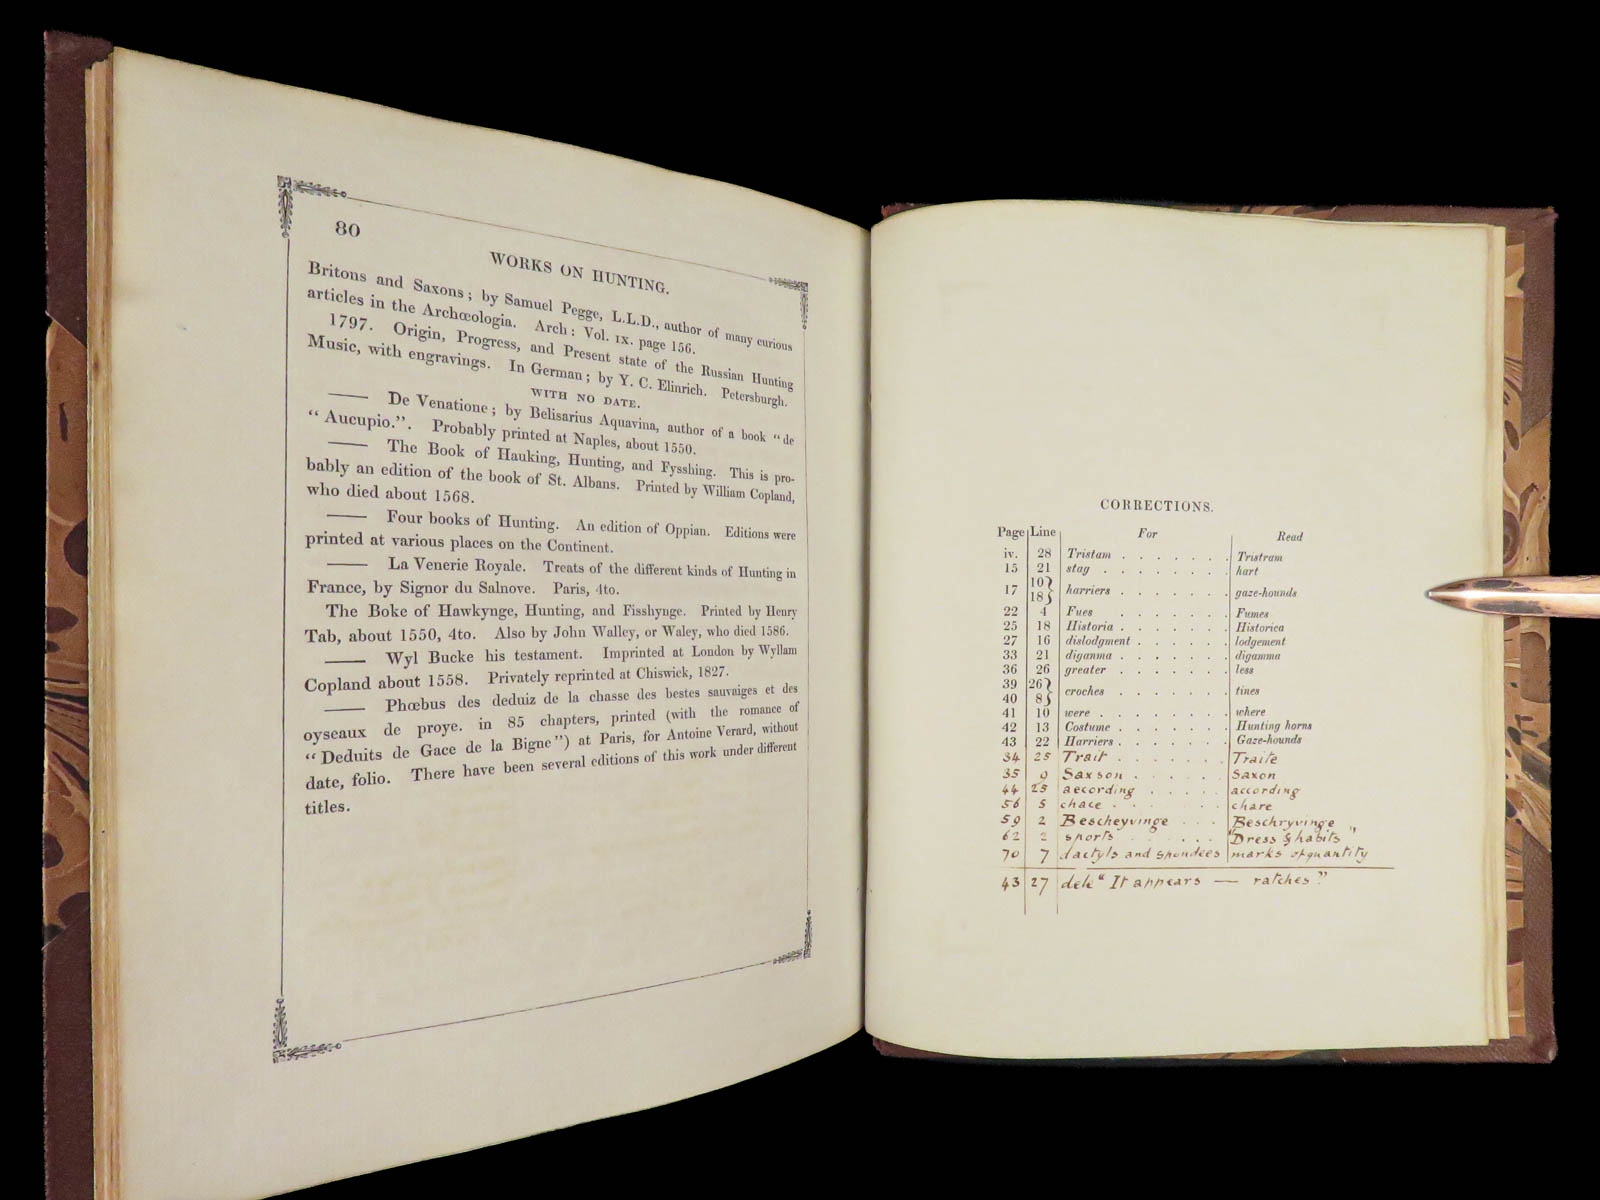 80
WORKS ON HUNTING.
Britons and Saxons; by Samuel Pegge, L.L.D., author of many curious
articles in the Archœologia. Arch: Vol. IX. page 156.
1797. Origin, Progress, and Present state of the Russian Hunting
Music, with engravings. In German; by Y. C. Elinrich. Petersburgh.
WITH NO DATE.
—— De Venatione; by Belisarius Aquavina, author of a book "de
"Aucupio.". Probably printed at Naples, about 1550.
—— The Book of Hauking, Hunting, and Fysshing. This is pro-
bably an edition of the book of St. Albans. Printed by William Copland,
who died about 1568.
—— Four books of Hunting. An edition of Oppian. Editions were
printed at various places on the Continent.
—— La Venerie Royale. Treats of the different kinds of Hunting in
France, by Signor du Salnove. Paris, 4to.
The Boke of Hawkynge, Hunting, and Fisshynge. Printed by Henry
Tab, about 1550, 4to. Also by John Walley, or Waley, who died 1586.
—— Wyl Bucke his testament. Imprinted at London by Wyllam
Copland about 1558. Privately reprinted at Chiswick, 1827.
—— Phœbus des deduiz de la chasse des bestes sauvaiges et des
oyseaux de proye. in 85 chapters, printed (with the romance of
"Deduits de Gace de la Bigne") at Paris, for Antoine Verard, without
date, folio. There have been several editions of this work under different
titles.
CORRECTIONS.
Page Line For Read
iv. 28 Tristam . . . . . . . Tristram
15 21 stag . . . . . . . . hart
17 10 18 } harriers . . . . . . . gaze-hounds
22 4 Fues . . . . . . . Fumes
25 18 Historia . . . . . . . Historica
27 16 dislodgment . . . . . . lodgement
33 21 diganma . . . . . . . digamma
36 26 greater . . . . . . . less
39 26 } 40 8 } croches . . . . . . . tines
41 10 were . . . . . . . . where
42 13 Costume . . . . . . . Hunting horns
43 22 Harriers . . . . . . . Gaze-hounds
34 25 Trait . . . . . . . Traite
35 9 Saxson . . . . . . Saxon
44 25 aecording . . . . . according
56 5 chace . . . . . . . chare
59 2 Bescheyvinge . . . Beschryvinge
62 2 sports . . . . . . "Dress & habits"
70 7 dactyls and spondees marks of quantity
43 27 dele "It appears — ratches"